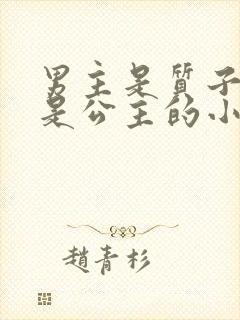 男主是質子
是公主的小
趙青杉